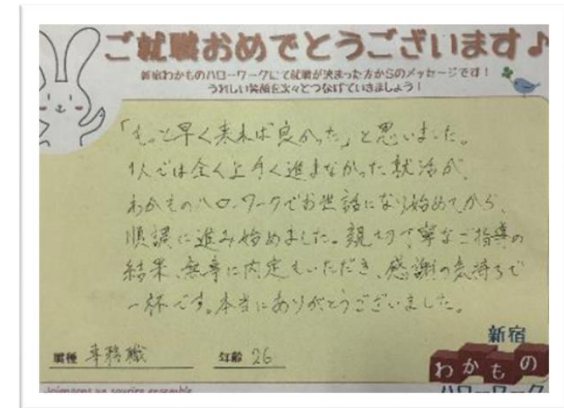 ご就職おめでとうございます♪
新宿わかものハローワークにて就職が決まった方からのメッセージです！
うれしい笑顔を次々とつなげていきましょう！
「もっと早く来れば良かった」と思いました。
1人では全く上手く進まなかった就活が、
わかものハローワークでお世話になり始めてから、
順調に進み始めました。親切丁寧なご指導の
結果、無事に内定もいただき、感謝の気持ちで
一杯です。本当にありがとうございました。
職種 事務職 年齢 26
新宿
わかもの
ハローワーク